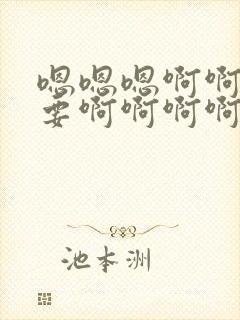 嗯嗯嗯啊啊
要啊啊啊啊
池本洲